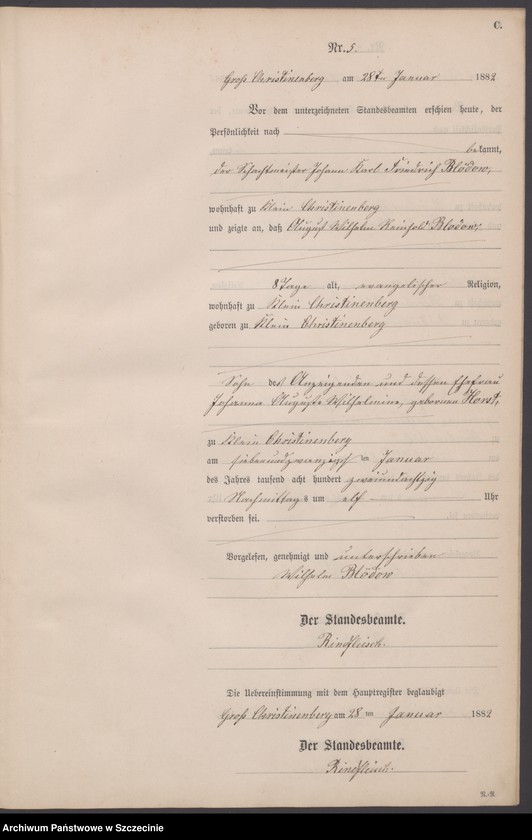 C.
Nr. 5.
Groß Christinenberg am 28ten Januar 1882
Vor dem unterzeichneten Standesbeamten erschien heute, der
Persönlichkeit nach
bekannt,
der Schachtmeister Johann Karl Friedrich Blödow,
wohnhaft zu Klein Christinenberg
und zeigte an, daß August Wilhelm Reinhold Blödow,
8 Tage alt, evangelischer Religion,
wohnhaft zu Klein Christinenberg
geboren zu Klein Christinenberg
Sohn des Anzeigenden und dessen Ehefrau
Johanna Auguste Wilhelmine, geborenen Horst,
zu Klein Christinenberg
am siebenundzwanzigsten Januar
des Jahres tausend acht hundert zweiundachtzig
Nachmittags um elf Uhr
verstorben sei.
Vorgelesen, genehmigt und unterschrieben
Wilhelm Blödow
Der Standesbeamte.
Rindfleisch.
Die Uebereinstimmung mit dem Hauptregister beglaubigt
Groß Christinenberg am 28ten Januar 1882
Der Standesbeamte.
Rindfleisch.
Archiwum Państwowe w Szczecinie